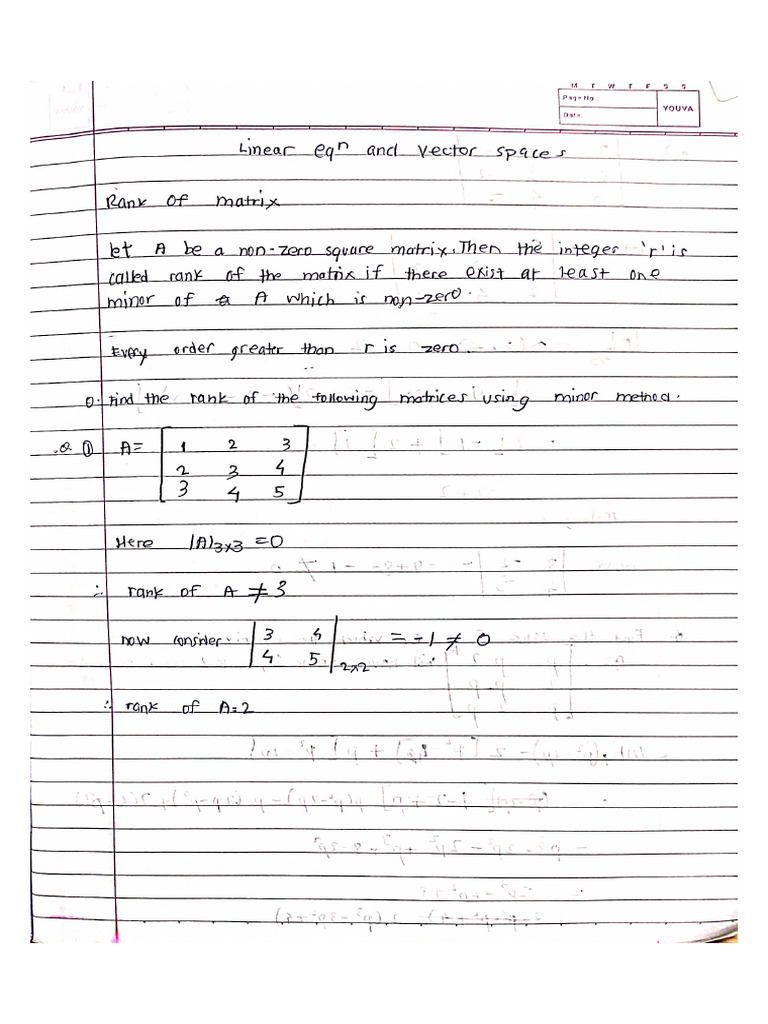 M T W T F S S
Page No.:
Date:
YOUVA
Linear eqn and vector spaces
Rank of matrix
let A be a non-zero square matrix. Then the integer 'r' is
called rank of the matrix if there exist at least one
minor of A which is non-zero.
Every order greater than r is zero.
Q. Find the rank of the following matrices using minor method.
Q ① A = [ 1 2 3
2 3 4
3 4 5 ]
Here |A|3×3 = 0
∴ rank of A ≠ 3
now consider | 3 4
4 5 |2×2 = -1 ≠ 0
∴ rank of A = 2